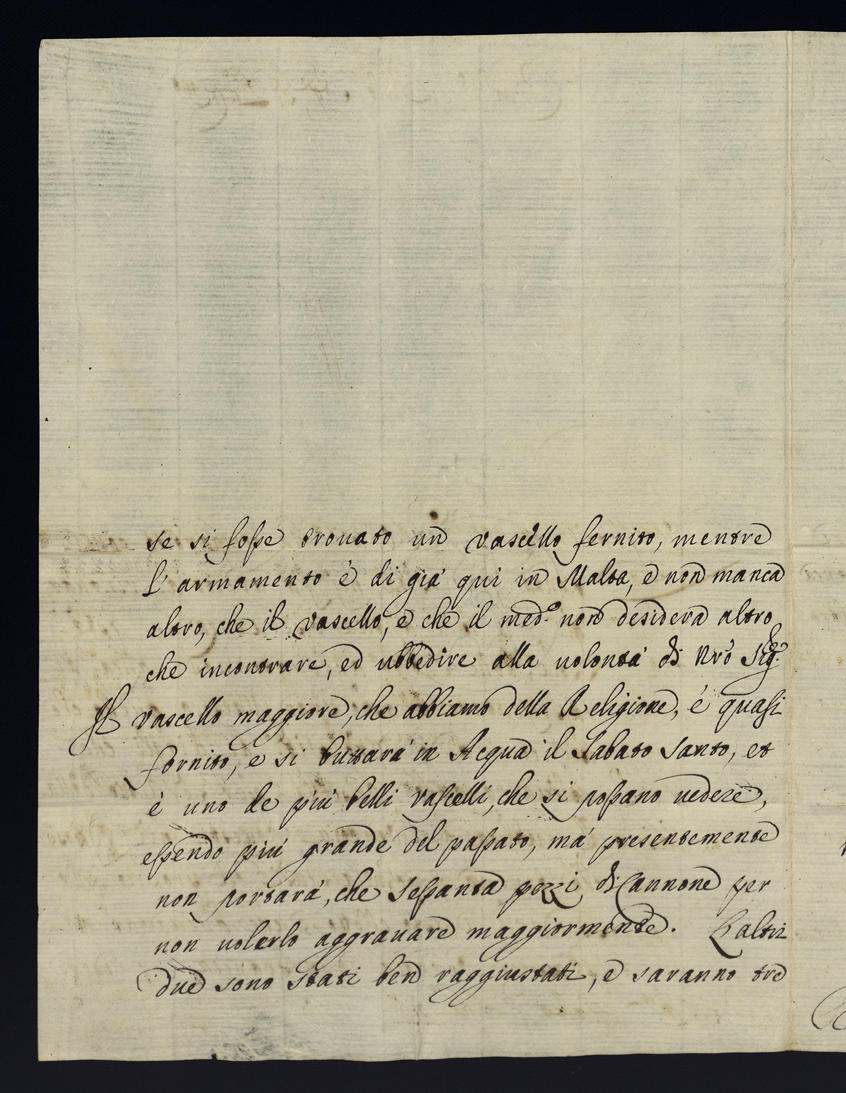 se si fosse trouato un vascello fernito, mentre
l'armamento è di già qui in Malta, e non manca
altro, che il vascello, e che il med.º non desidera altro
che incontrare, ed ubbedire alla uolontà di Nrô Sig.re
Il vascello maggiore, che abbiamo della Religione, è quasi
fornito, e si buttarà in Acqua il Sabato Santo, et
è uno de più belli vascelli, che si possano uedere,
essendo più grande del passato, mà presentemente
non portarà, che sessanta pezzi di Cannone per
non uolerlo aggrauare maggiormente. L'altri
due sono stati ben raggiustati, e saranno tre